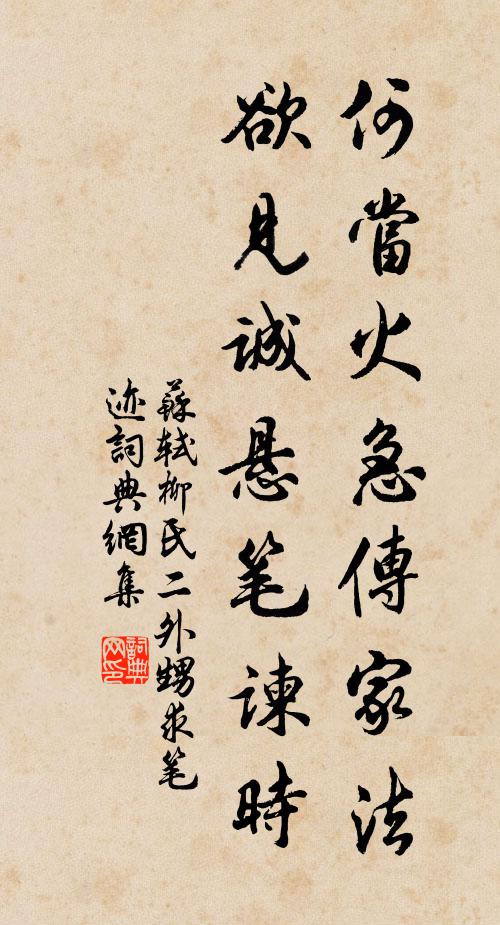 何當火急傳家法
欲見誠悬笔諫時
蘇轼柳氏二外甥求笔
迹詞典網集
詞典
网印